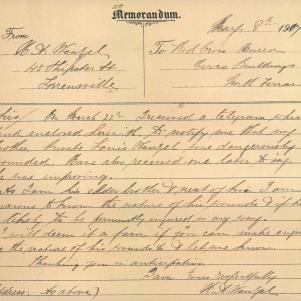 Memorandum.
May 8th 1917
From
To Red Cross Bureau
H. A. Wenzel
Verco Buildings
45 Shipster St
North Terrace
Torrensville
Sir/ On March 22nd I received a telegram which
and enclosed herewith to notify me that my
brother, Private Louis Wenzel were dangerously
wounded. Have also received one later to say
he was improving.
As I am his elder brother & next of kin I am
anxious to know the nature of his wounds & if he
likely to be permently injured in any way.
I will deem it a favor if you can make enq
the nature of his wounds & let me know
thanking you in anticipation
I am Yours respectfully
H. A. Wenzel
(Address: As above)